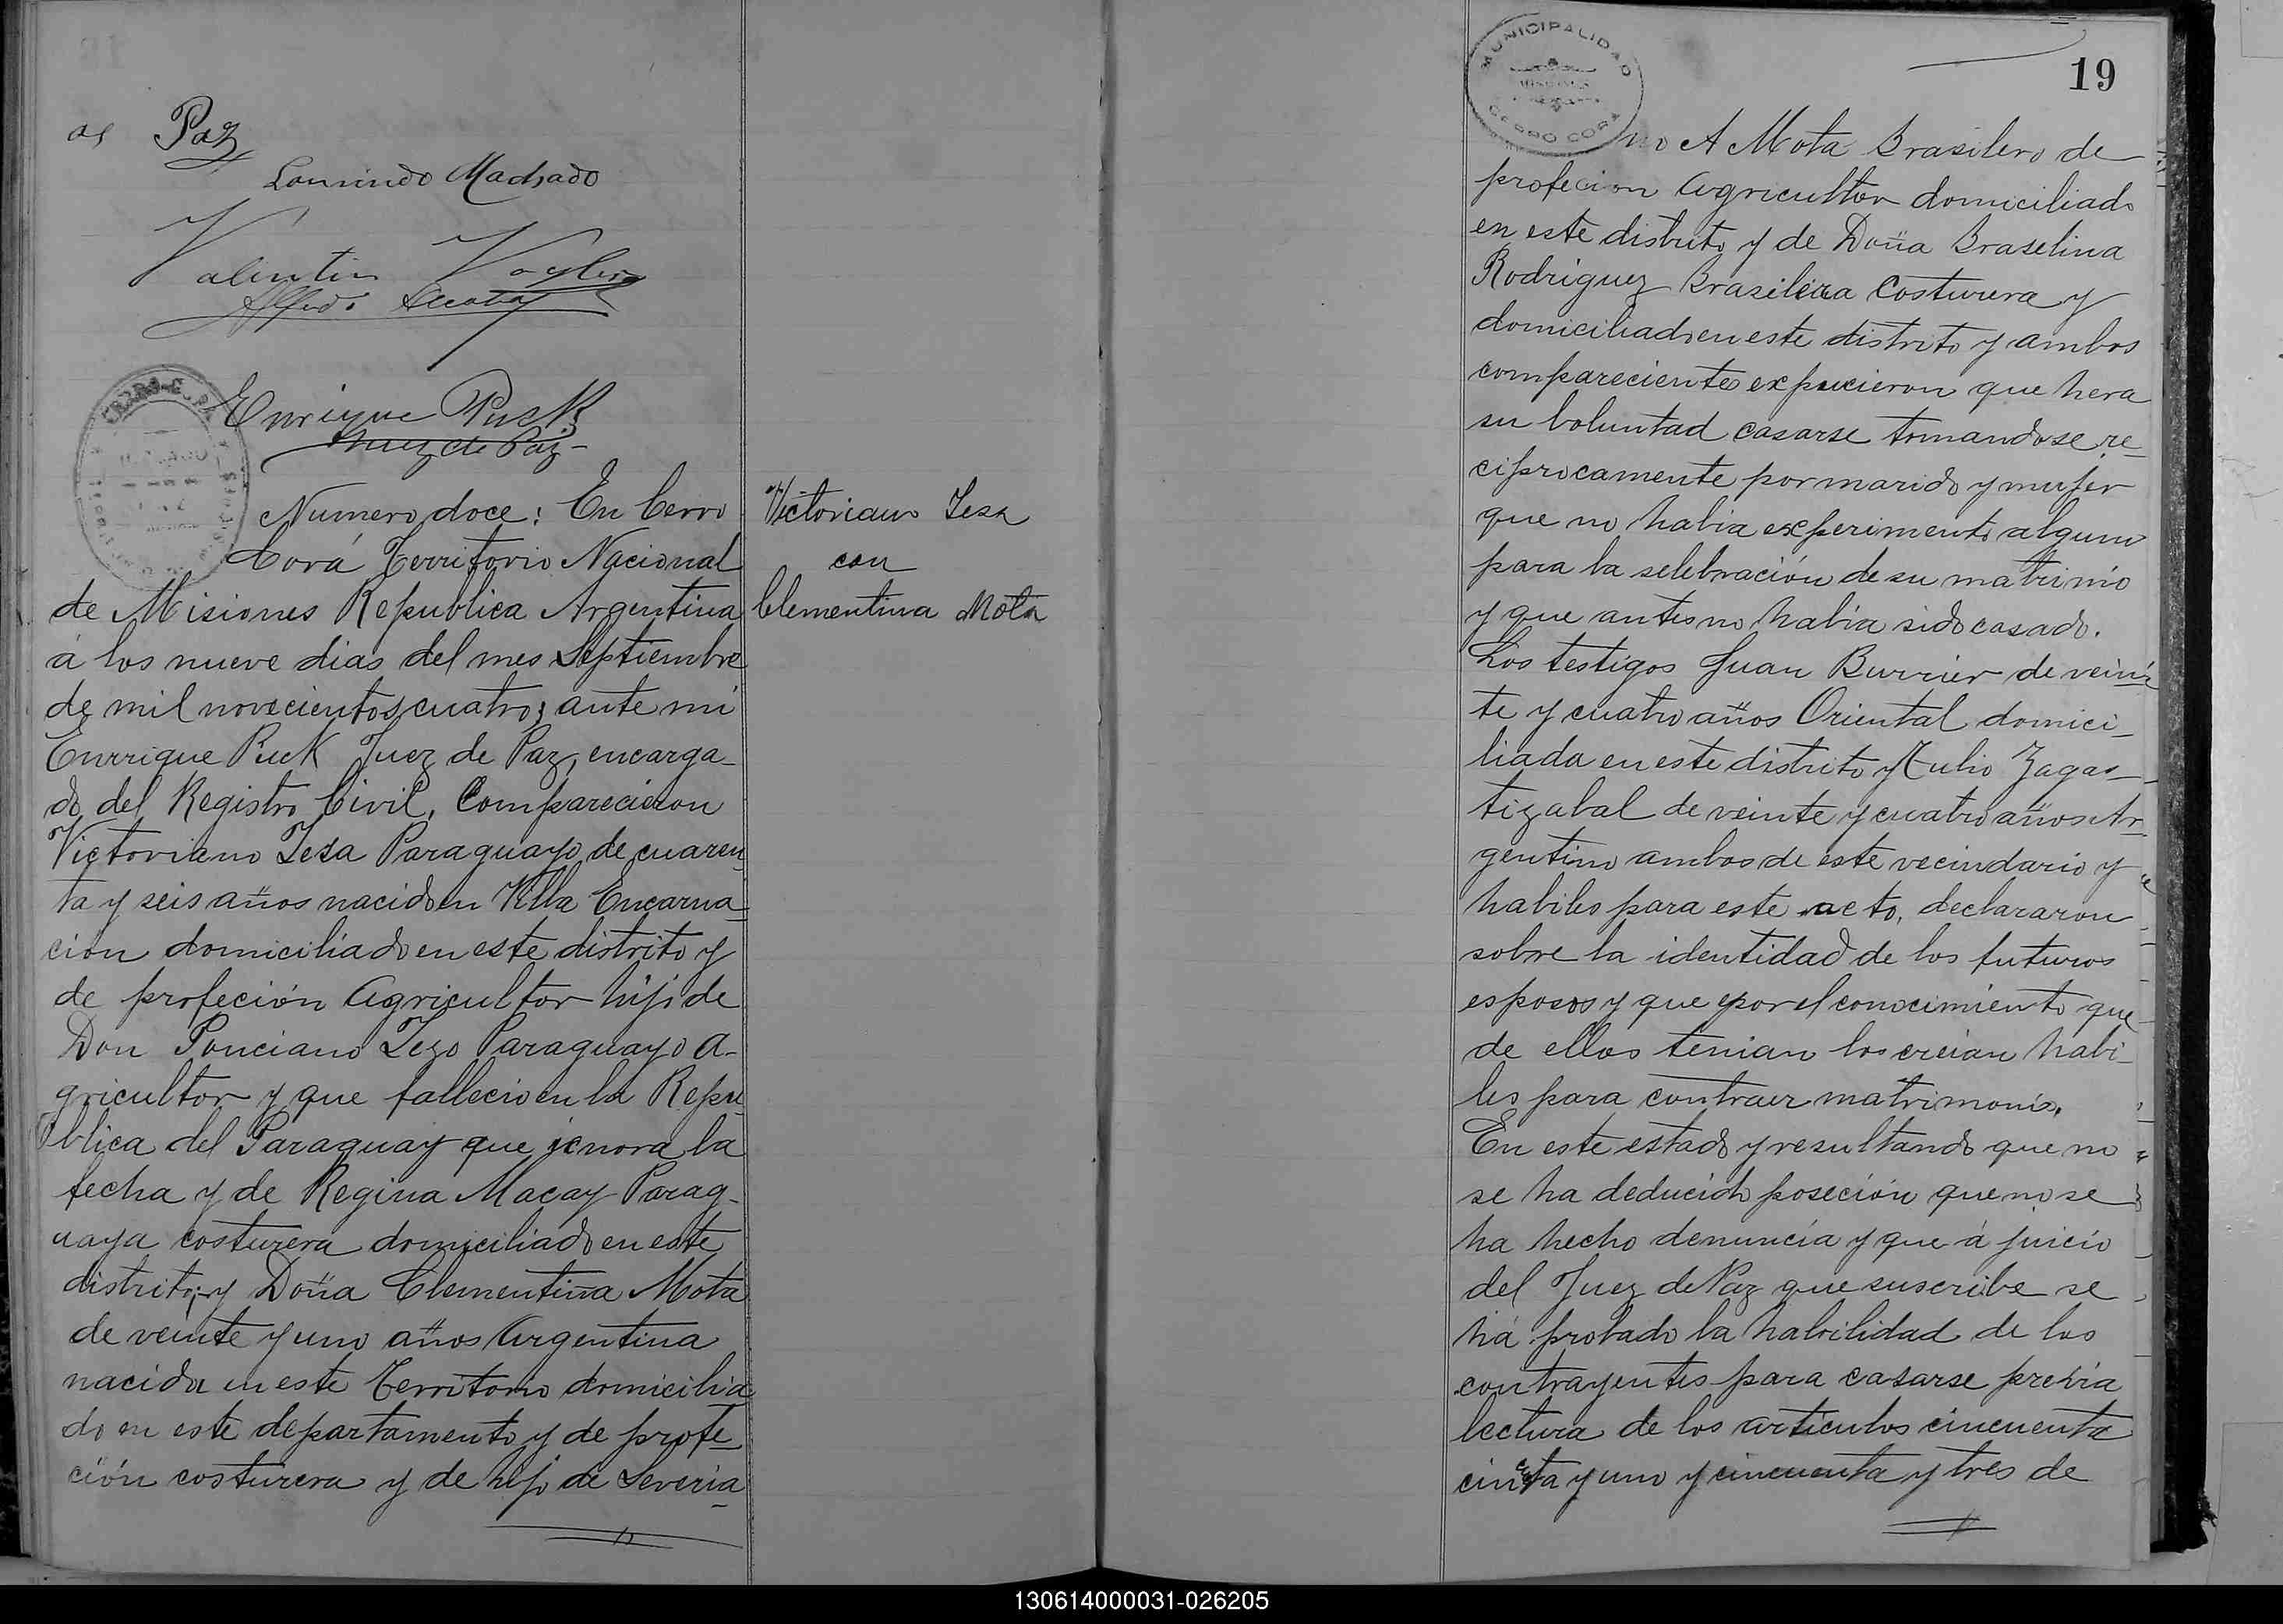 as Paz
Machado
Valentin
Alfredo
CERRO CORA
Enrique Puck
Juez de Paz
Numero doce: En Cerro
Corá Territorio Nacional
de Misiones Republica Argentina
á los nueve dias del mes Septiembre
de mil novecientos cuatro; ante mi
Enrrique Puck Juez de Paz, encarga-
do del Registro Civil, Comparecieron
Victoriano Lesa Paraguayo de cuaren
ta y seis años nacido en Villa Encarna-
cion domiciliado en este distrito y
de profeción Agricultor hijo de
Don Ponciano Lezo Paraguayo a-
gricultor y que fallecio en la Repu
blica del Paraguay que icnora la
fecha y de Regina Macay Parag-
uaya costurera domiciliado en este
distrito; y Doña Clementina Mota
de veinte y uno años Argentina
nacida en este Territorio domicilia
do en este departamento y de profe
ción costurera y de hijo de Severia
Victoriano Lesa
con
Clementina Mota
MUNICIPALIDAD
CERRO CORA
19
no A Mota Brasilero de
profecion Agricultor domiciliado
en este distrito y de Doña Braselina
Rodriguez Brasilera Costurera y
domiciliado en este distrito y ambos
compareciente expucieron que hera
su boluntad casarse tomandose re-
ciprocamente por marido y mujer
que no habia experimento alguno
para la selebración de su matrinio
y que antes no habia sido casado.
Los testigos Juan Burrier de vein-
te y cuatro años Oriental domici-
liada en este distrito y Julio Zagas-
tizabal de veinte y cuatro años Ar-
gentino ambos de este vecindario y
habiles para este acto, declararon
sobre la identidad de los futuros
esposos y que por el conocimiento que
de ellos tenian los creian habi-
les para contraer matrimonio.
En este estado y resultando que no
se ha deducido poseción que no se
ha hecho denuncia y que á juicio
del Juez de Paz que suscribe se
há probado la habilidad de los
contrayentes para casarse previa
lectura de los articulos cincuenta
cincuenta y uno y cincuenta y tres de
130614000031-026205